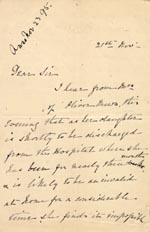 Ans Nov 23 95.
21st Nov.
Dear Sir
I hear from Mrs
Oliver this
Evening that as her daughter
is shortly to be discharged
from the Hospital where she
has been for nearly three months
& is likely to be an invalid
at Home for a considerable
time she finds it